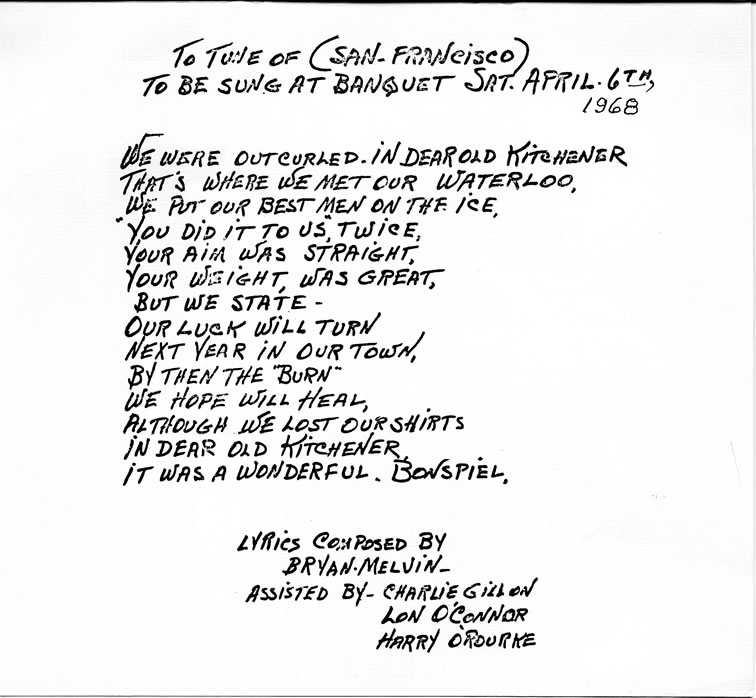 TO TUNE OF (SAN-FRANCISCO)
TO BE SUNG AT BANQUET SAT. APRIL. 6TH,
1968
WE WERE OUTCURLED. IN DEAR OLD KITCHENER
THAT'S WHERE WE MET OUR WATERLOO,
WE PUT OUR BEST MEN ON THE ICE,
"YOU DID IT TO US", TWICE,
YOUR AIM WAS STRAIGHT,
YOUR WEIGHT, WAS GREAT,
BUT WE STATE -
OUR LUCK WILL TURN
NEXT YEAR IN OUR TOWN,
BY THEN THE "BURN"
WE HOPE WILL HEAL,
ALTHOUGH WE LOST OUR SHIRTS
IN DEAR OLD KITCHENER,
IT WAS A WONDERFUL. BONSPIEL.
LYRICS COMPOSED BY
BRYAN-MELVIN-
ASSISTED BY- CHARLIE GILLON
LON O'CONNOR
HARRY O'ROURKE